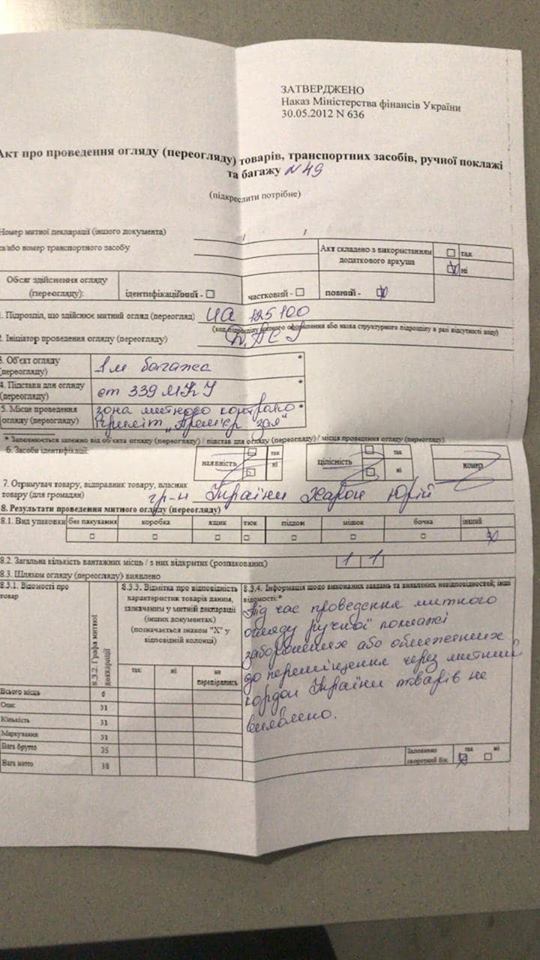 ЗАТВЕРДЖЕНО
Наказ Міністерства фінансів України
30.05.2012 N 636
Акт про проведення огляду (переогляду) товарів, транспортних засобів, ручної поклажі
та багажу N 49
(підкреслити потрібне)
Номер митної декларації (іншого документа) / /
та/або номер транспортного засобу
Акт складено з використанням додаткового аркуша
так
ні
Обсяг здійснення огляду (переогляду):
ідентифікаційний - частковий - повний -
1. Підрозділ, що здійснює митний огляд (переогляд) UA 125100
(код підрозділу митного оформлення або назва структурного підрозділу в разі відсутності коду)
2. Ініціатор проведення огляду (переогляду)
3. Об'єкт огляду (переогляду) 1 м багажа *
4. Підстави для огляду (переогляду) ст 339 МКУ *
5. Місце проведення огляду (переогляду) зона митного контролю *
* Заповнюється залежно від об'єкта огляду (переогляду) / підстав для огляду (переогляду) / місця проведення огляду (переогляду)
6. Засоби ідентифікації:
наявність так ні цілісність так ні номер
7. Отримувач товару, відправник товару, власник товару (для громадян) гр-н України Харон Юрій
8. Результати проведення митного огляду (переогляду)
8.1. Вид упаковки без пакування коробка ящик тюк піддон мішок бочка інший
8.2. Загальна кількість вантажних місць / з них відкритих (розпакованих) 1 1
8.3. Шляхом огляду (переогляду) виявлено
8.3.1. Відомості про товар
8.3.2. Графа митної декларації
8.3.3. Відмітка про відповідність характеристик товарів даним, зазначеним у митній декларації (інших документах) (позначається знаком "X" у відповідній колонці)
так ні не перевірялись
8.3.4. Інформація щодо виконаних завдань та виявлених невідповідностей; інші відомості*
Під час проведення митного
огляду ручної поклажі
заборонених або обмежених
до переміщення через митний
кордон України товарів не
виявлено.
Всього місць 6
Опис 31
Кількість 31
Маркування 31
Вага брутто 35
Вага нетто 38
Заповнено зворотний бік так ні